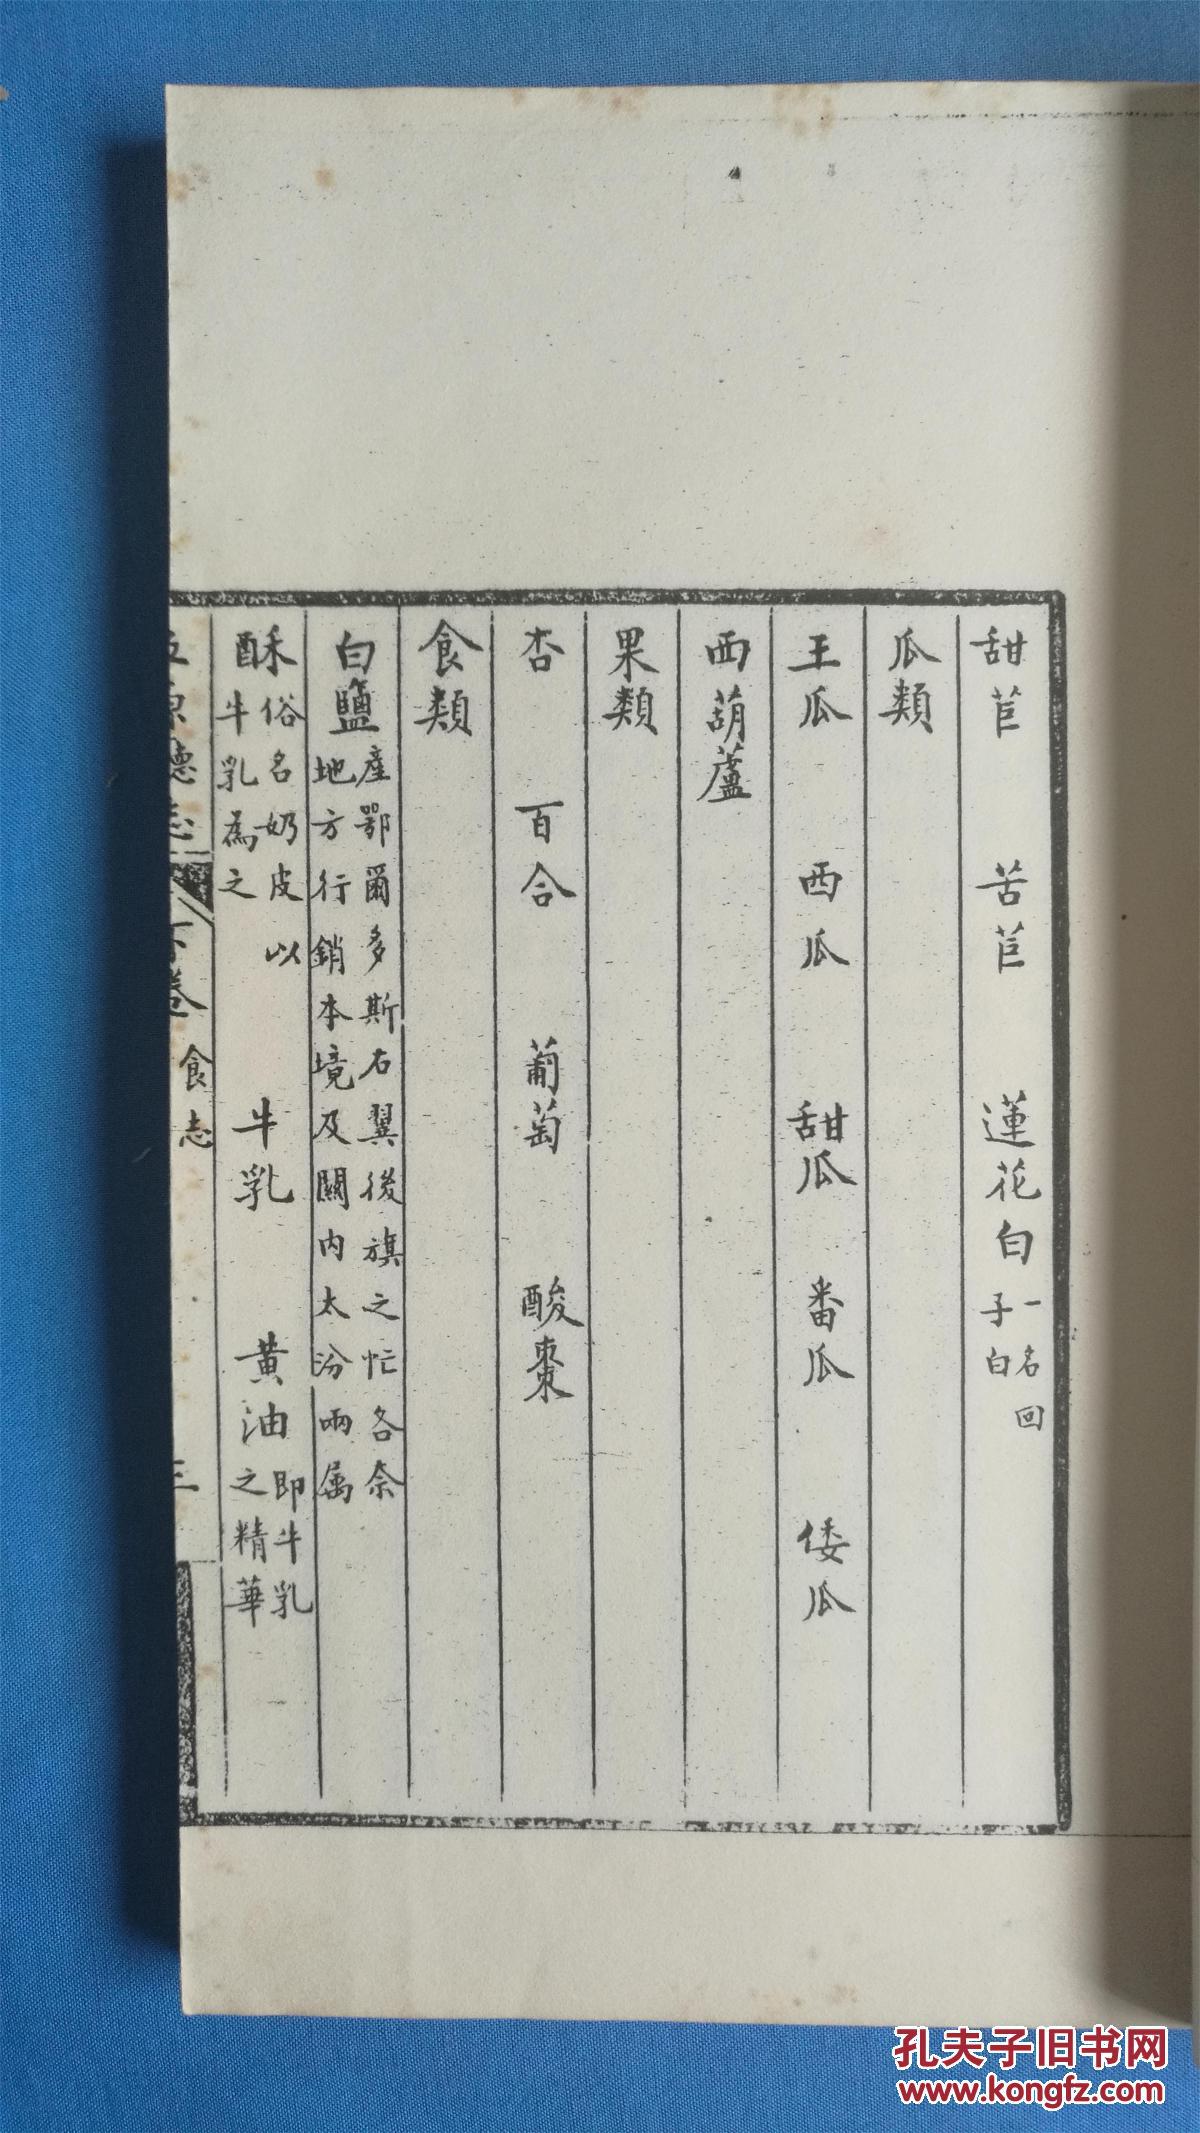 甜苣 苦苣 蓮花白 一名回子白
瓜類
王瓜 西瓜 甜瓜 番瓜 倭瓜
西葫蘆
果類
杏 百合 葡萄 酸棗
食類
白鹽 產鄂爾多斯右翼後旗之忙各奈地方行銷本境及關內太汾兩属
酥 俗名奶皮以牛乳為之 牛乳 黄油 即牛乳之精華
五原廳志 下卷 食志 三
孔夫子旧书网
www.kongfz.com